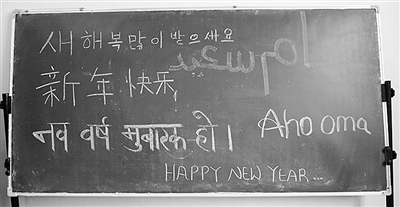 새해복많이 받으세요
新年快乐,
नव वर्ष मुबारक हो।
Aho oma
HAPPY NEW YEAR...